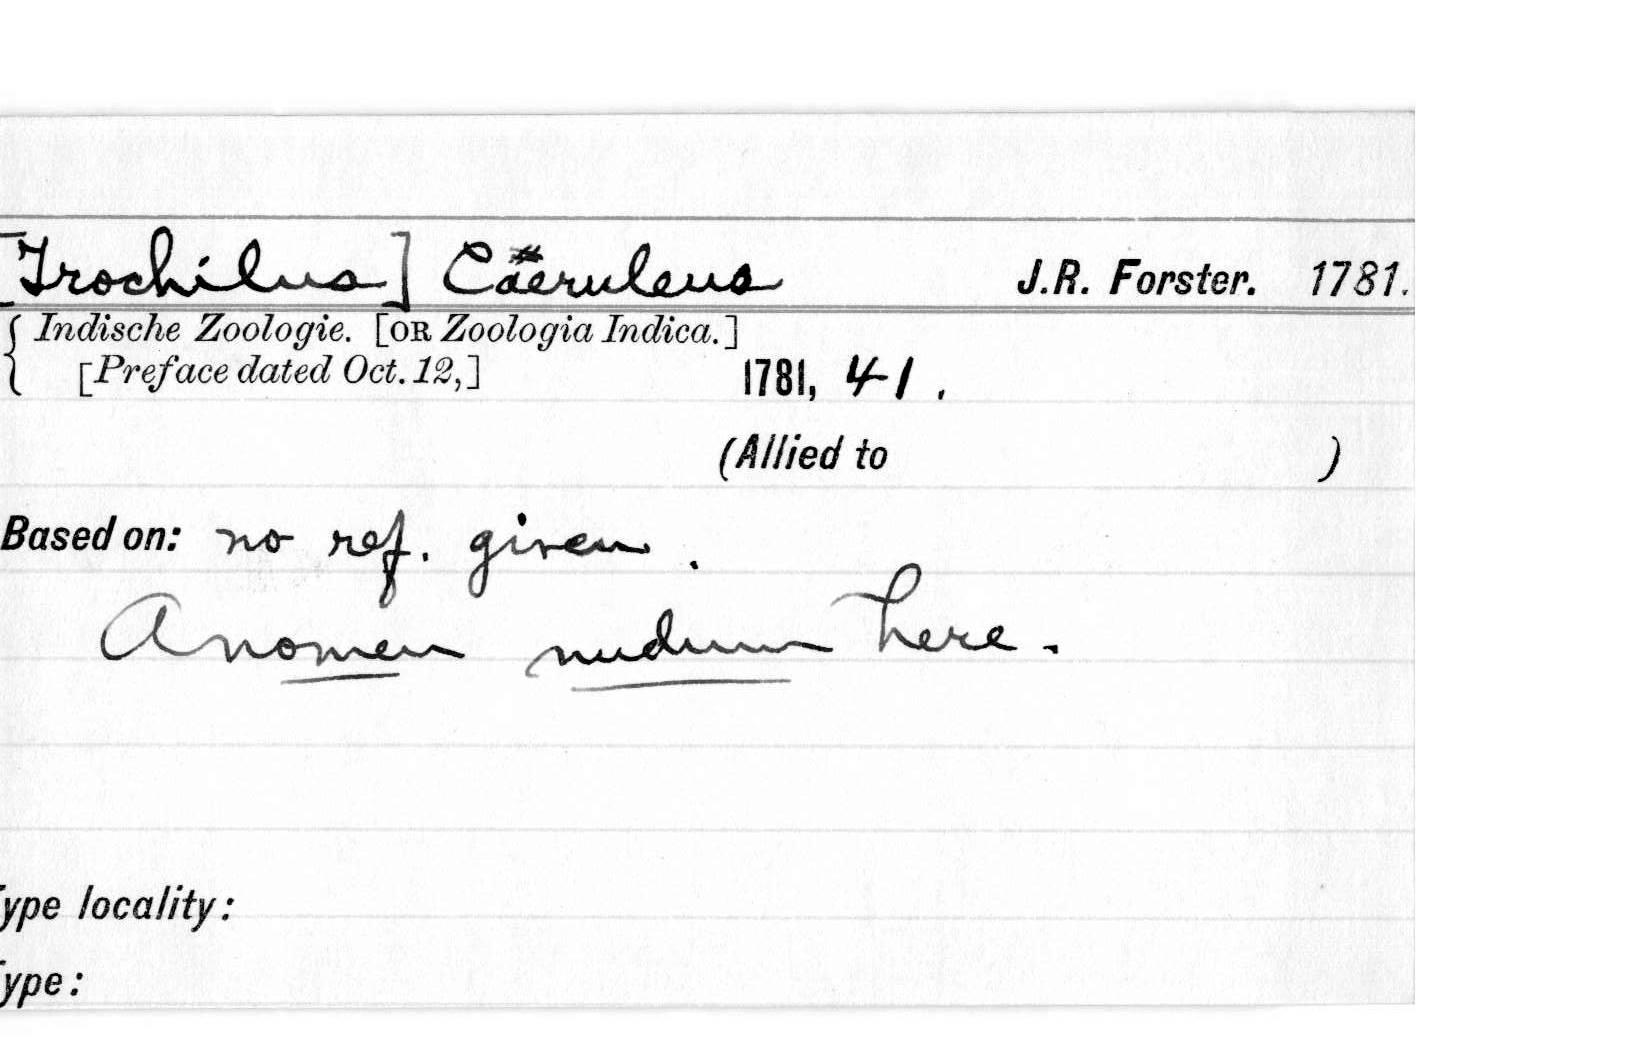 [Trochilus] Cäeruleus J.R. Forster. 1781.
Indische Zoologie. [OR Zoologia Indica.]
[Preface dated Oct. 12,] 1781, 41.
(Allied to )
Based on: no ref. given.
A nomen nudum here.
Type locality:
Type: